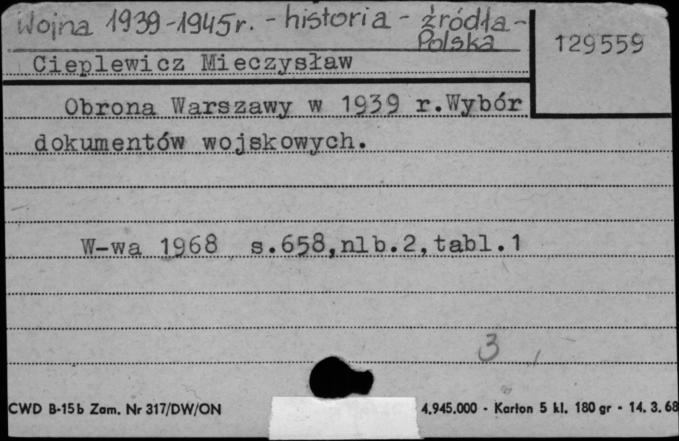 Wojna 1939-1945r. - historia - źródła -
Polska
129559
Cieplewicz Mieczysław
Obrona Warszawy w 1939 r.Wybór
dokumentów wojskowych.
W-wa 1968 s.658,nlb.2,tabl.1
3
CWD B-15b Zam. Nr 317/DW/ON
4.945.000 - Karton 5 kl. 180 gr - 14. 3. 68